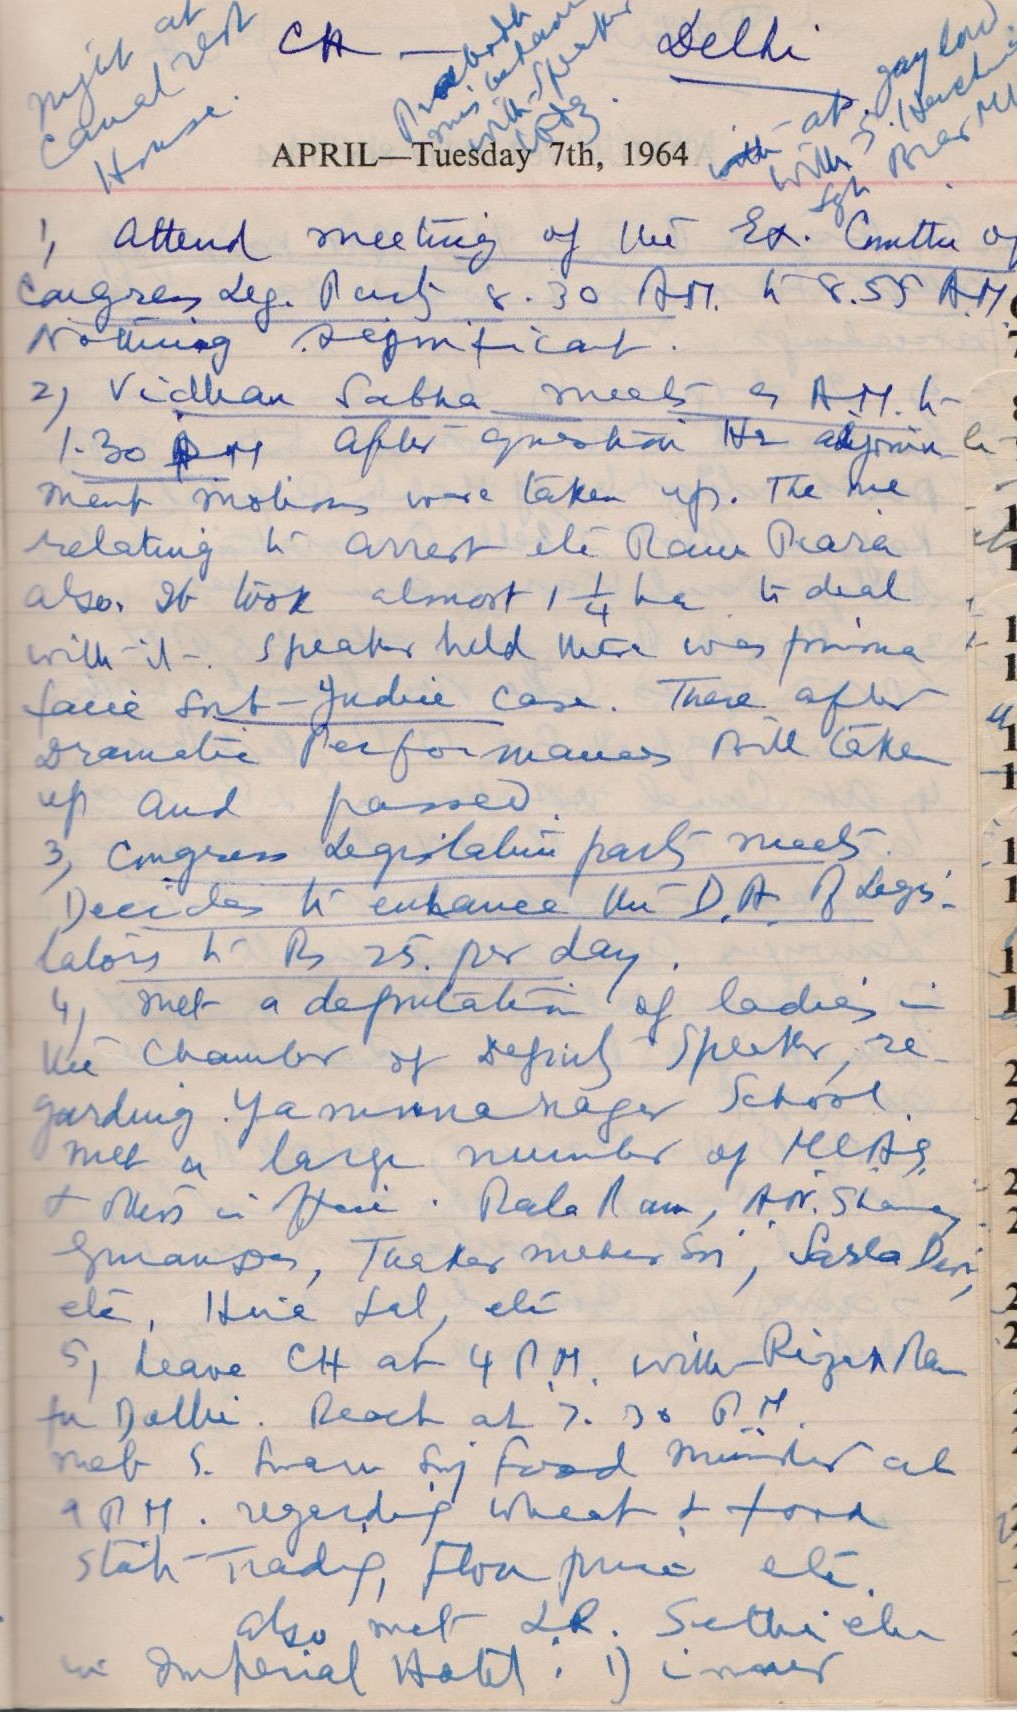 night at
Canal rest
House.
CH — Delhi
with Speaker
at Gaylord
with S.
APRIL—Tuesday 7th, 1964
1, Attend meeting of the Ex. Comttee of
Congress Leg. Party 8.30 A.M. to 8.55 A.M.
Nothing significant.
2, Vidhan Sabha meets 9 A.M. to
1.30 PM After question Hr adjourn-
ment motions were taken up. The one
relating to arrest etc Ram Piara
also. It took almost 1 1/4 hr to deal
with it. Speaker held there was prima
facie Sub-Judice case. There after
Dramatic Performances Bill taken
up and passed.
3, Congress Legislative party meets.
Decides to enhance the D.A. of Legis-
lators to Rs 25. per day.
4, met a deputation of ladies in
the Chamber of Deputy Speaker, re-
garding Yamunanagar School.
Met a large number of MLAs
+ others in office. Rala Ram, A.N. Sharma,
Gurandas, Thaker Meher Sri, Sarla Devi,
etc, Hira Lal, etc
5, Leave CH at 4 P.M. with Rizak Ram
for Delhi. Reach at 7.30 P.M.
met S. Swarn Sing Food Minister at
9 P.M. regarding wheat + food
State Trading, Flour price etc.
also met L.R. Sethi etc
in Imperial Hotel. Dinner